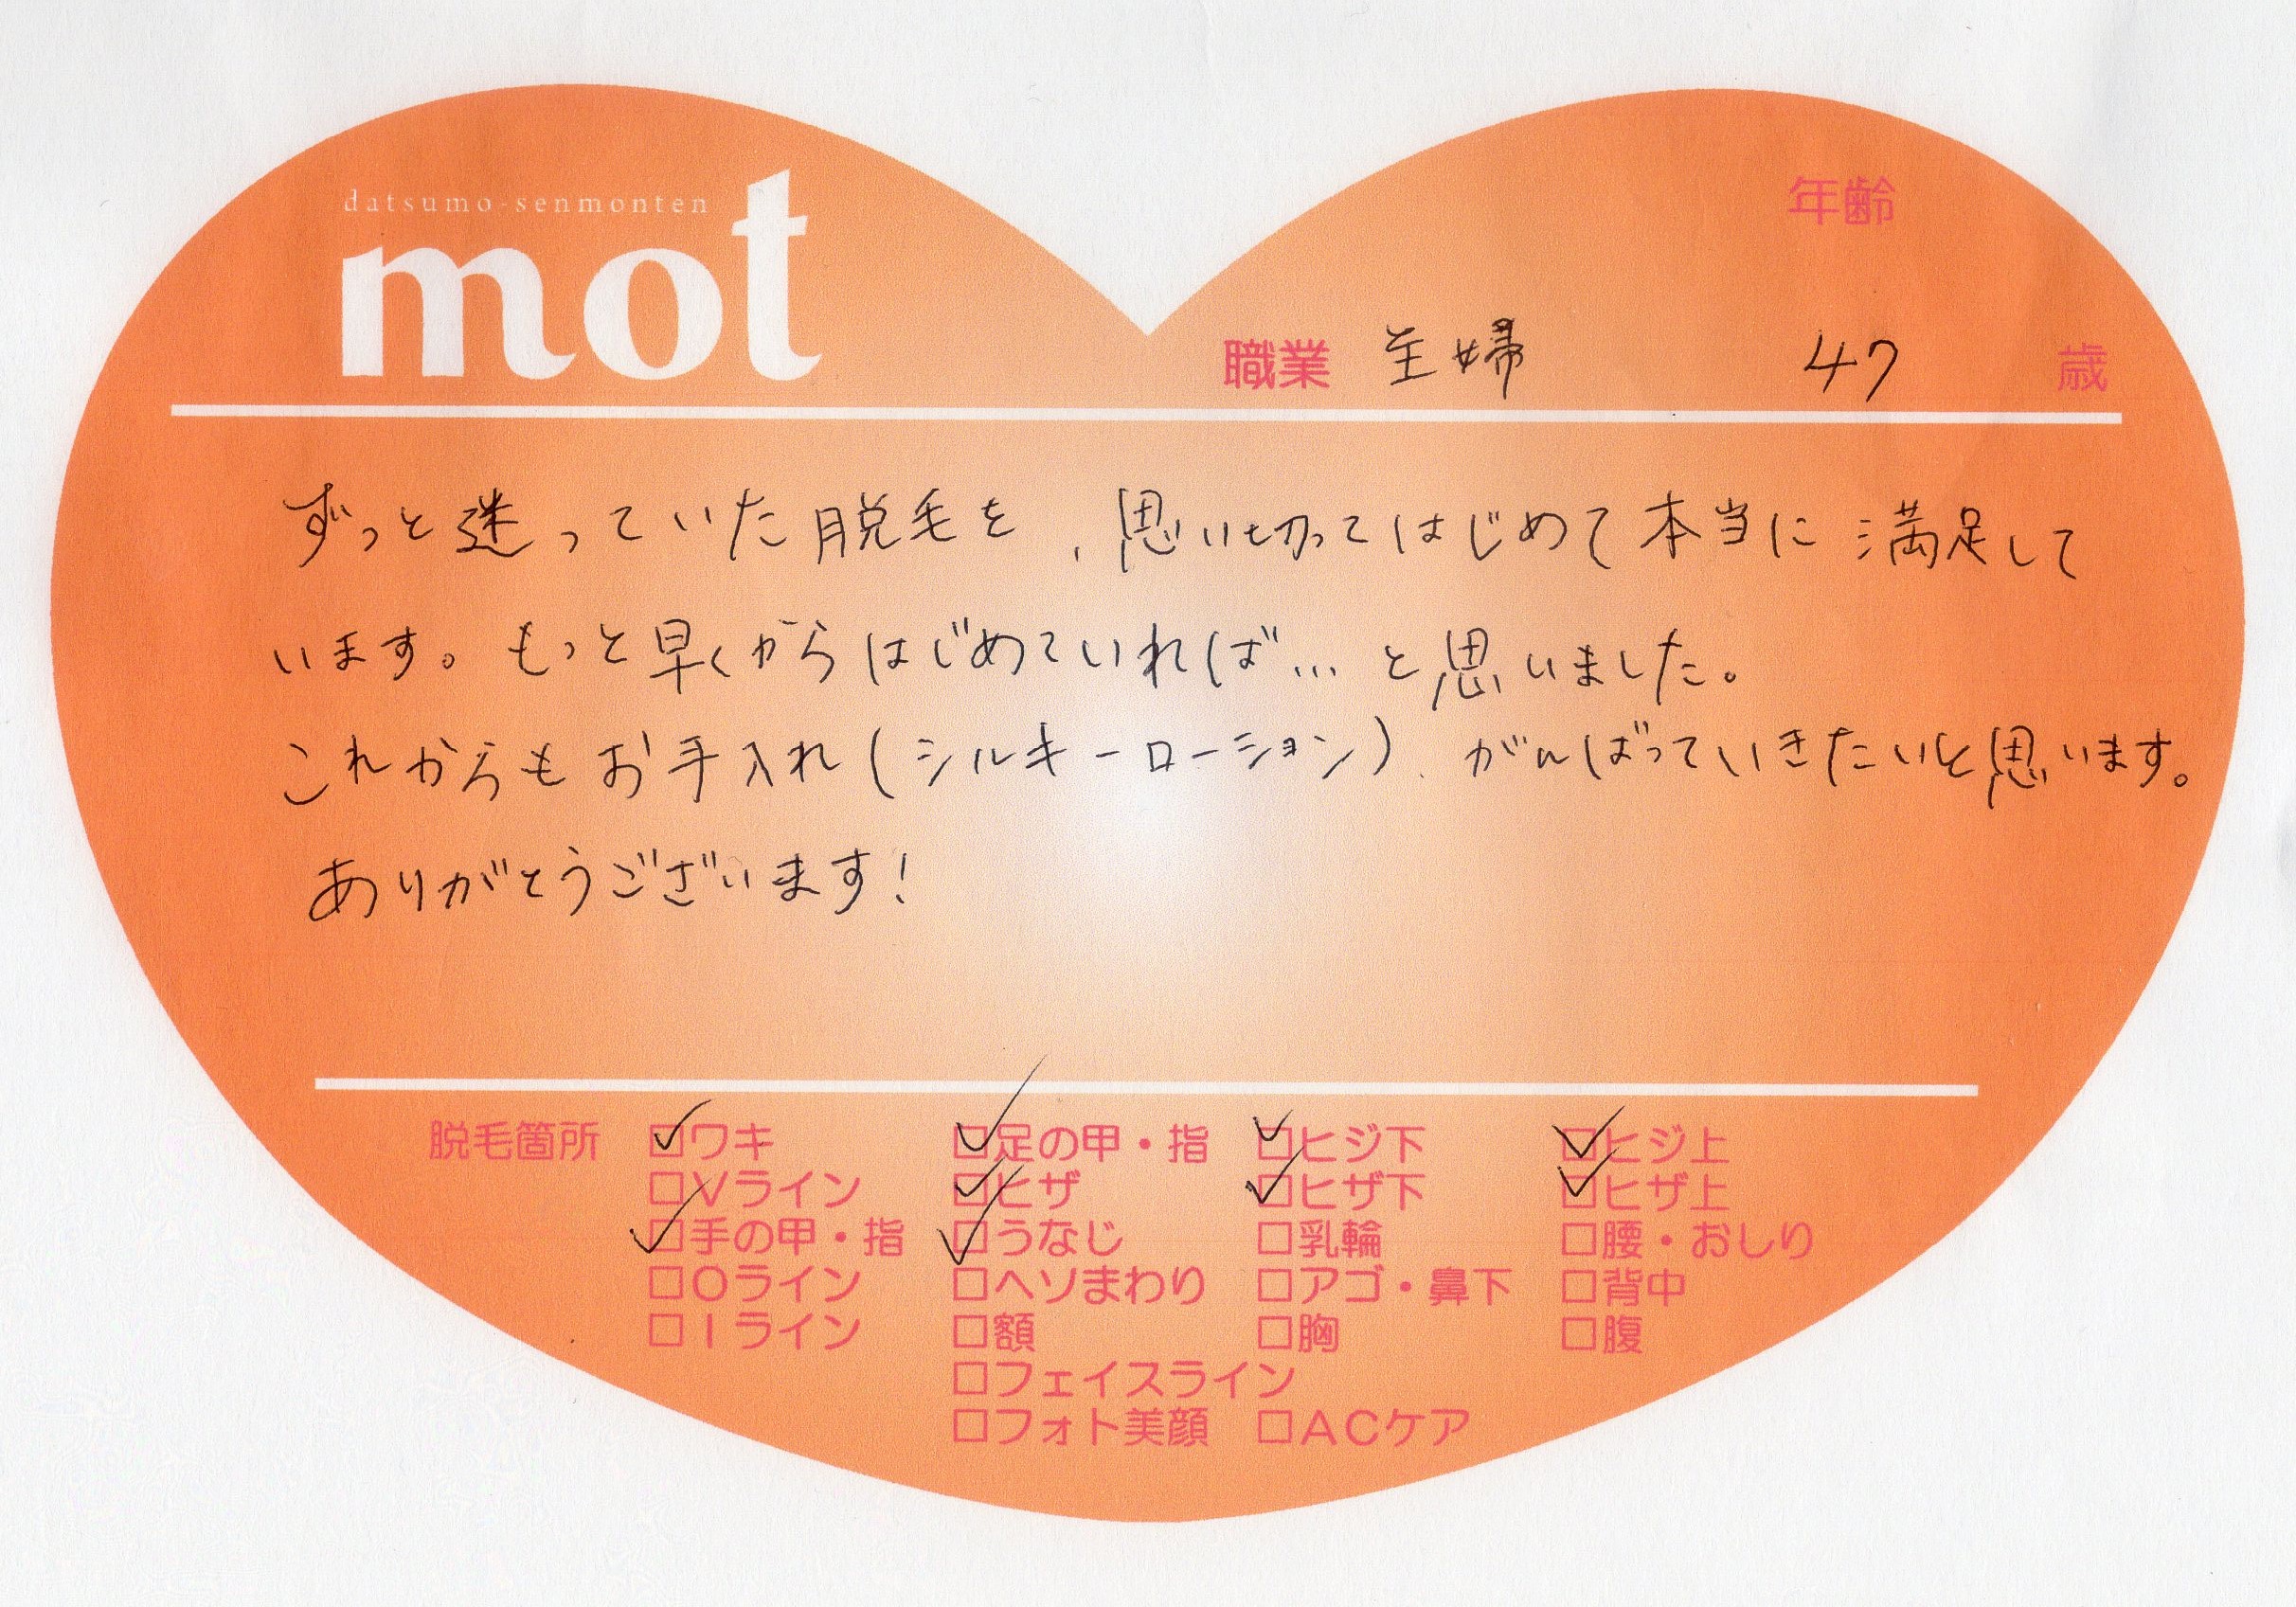 datsumo-senmonten
mot
年齢
職業 主婦 47 歳
ずっと迷っていた脱毛を、思い切ってはじめて本当に満足して
います。もっと早くからはじめていれば…と思いました。
これからもお手入れ(シルキーローション)、がんばっていきたいと思います。
ありがとうございます!
脱毛箇所 ☑ワキ ☑足の甲・指 ☑ヒジ下 ☑ヒジ上
□Vライン ☑ヒザ ☑ヒザ下 ☑ヒザ上
☑手の甲・指 ☑うなじ □乳輪 □腰・おしり
□Oライン □ヘソまわり □アゴ・鼻下 □背中
□Iライン □額 □胸 □腹
□フェイスライン
□フォト美顔 □ACケア